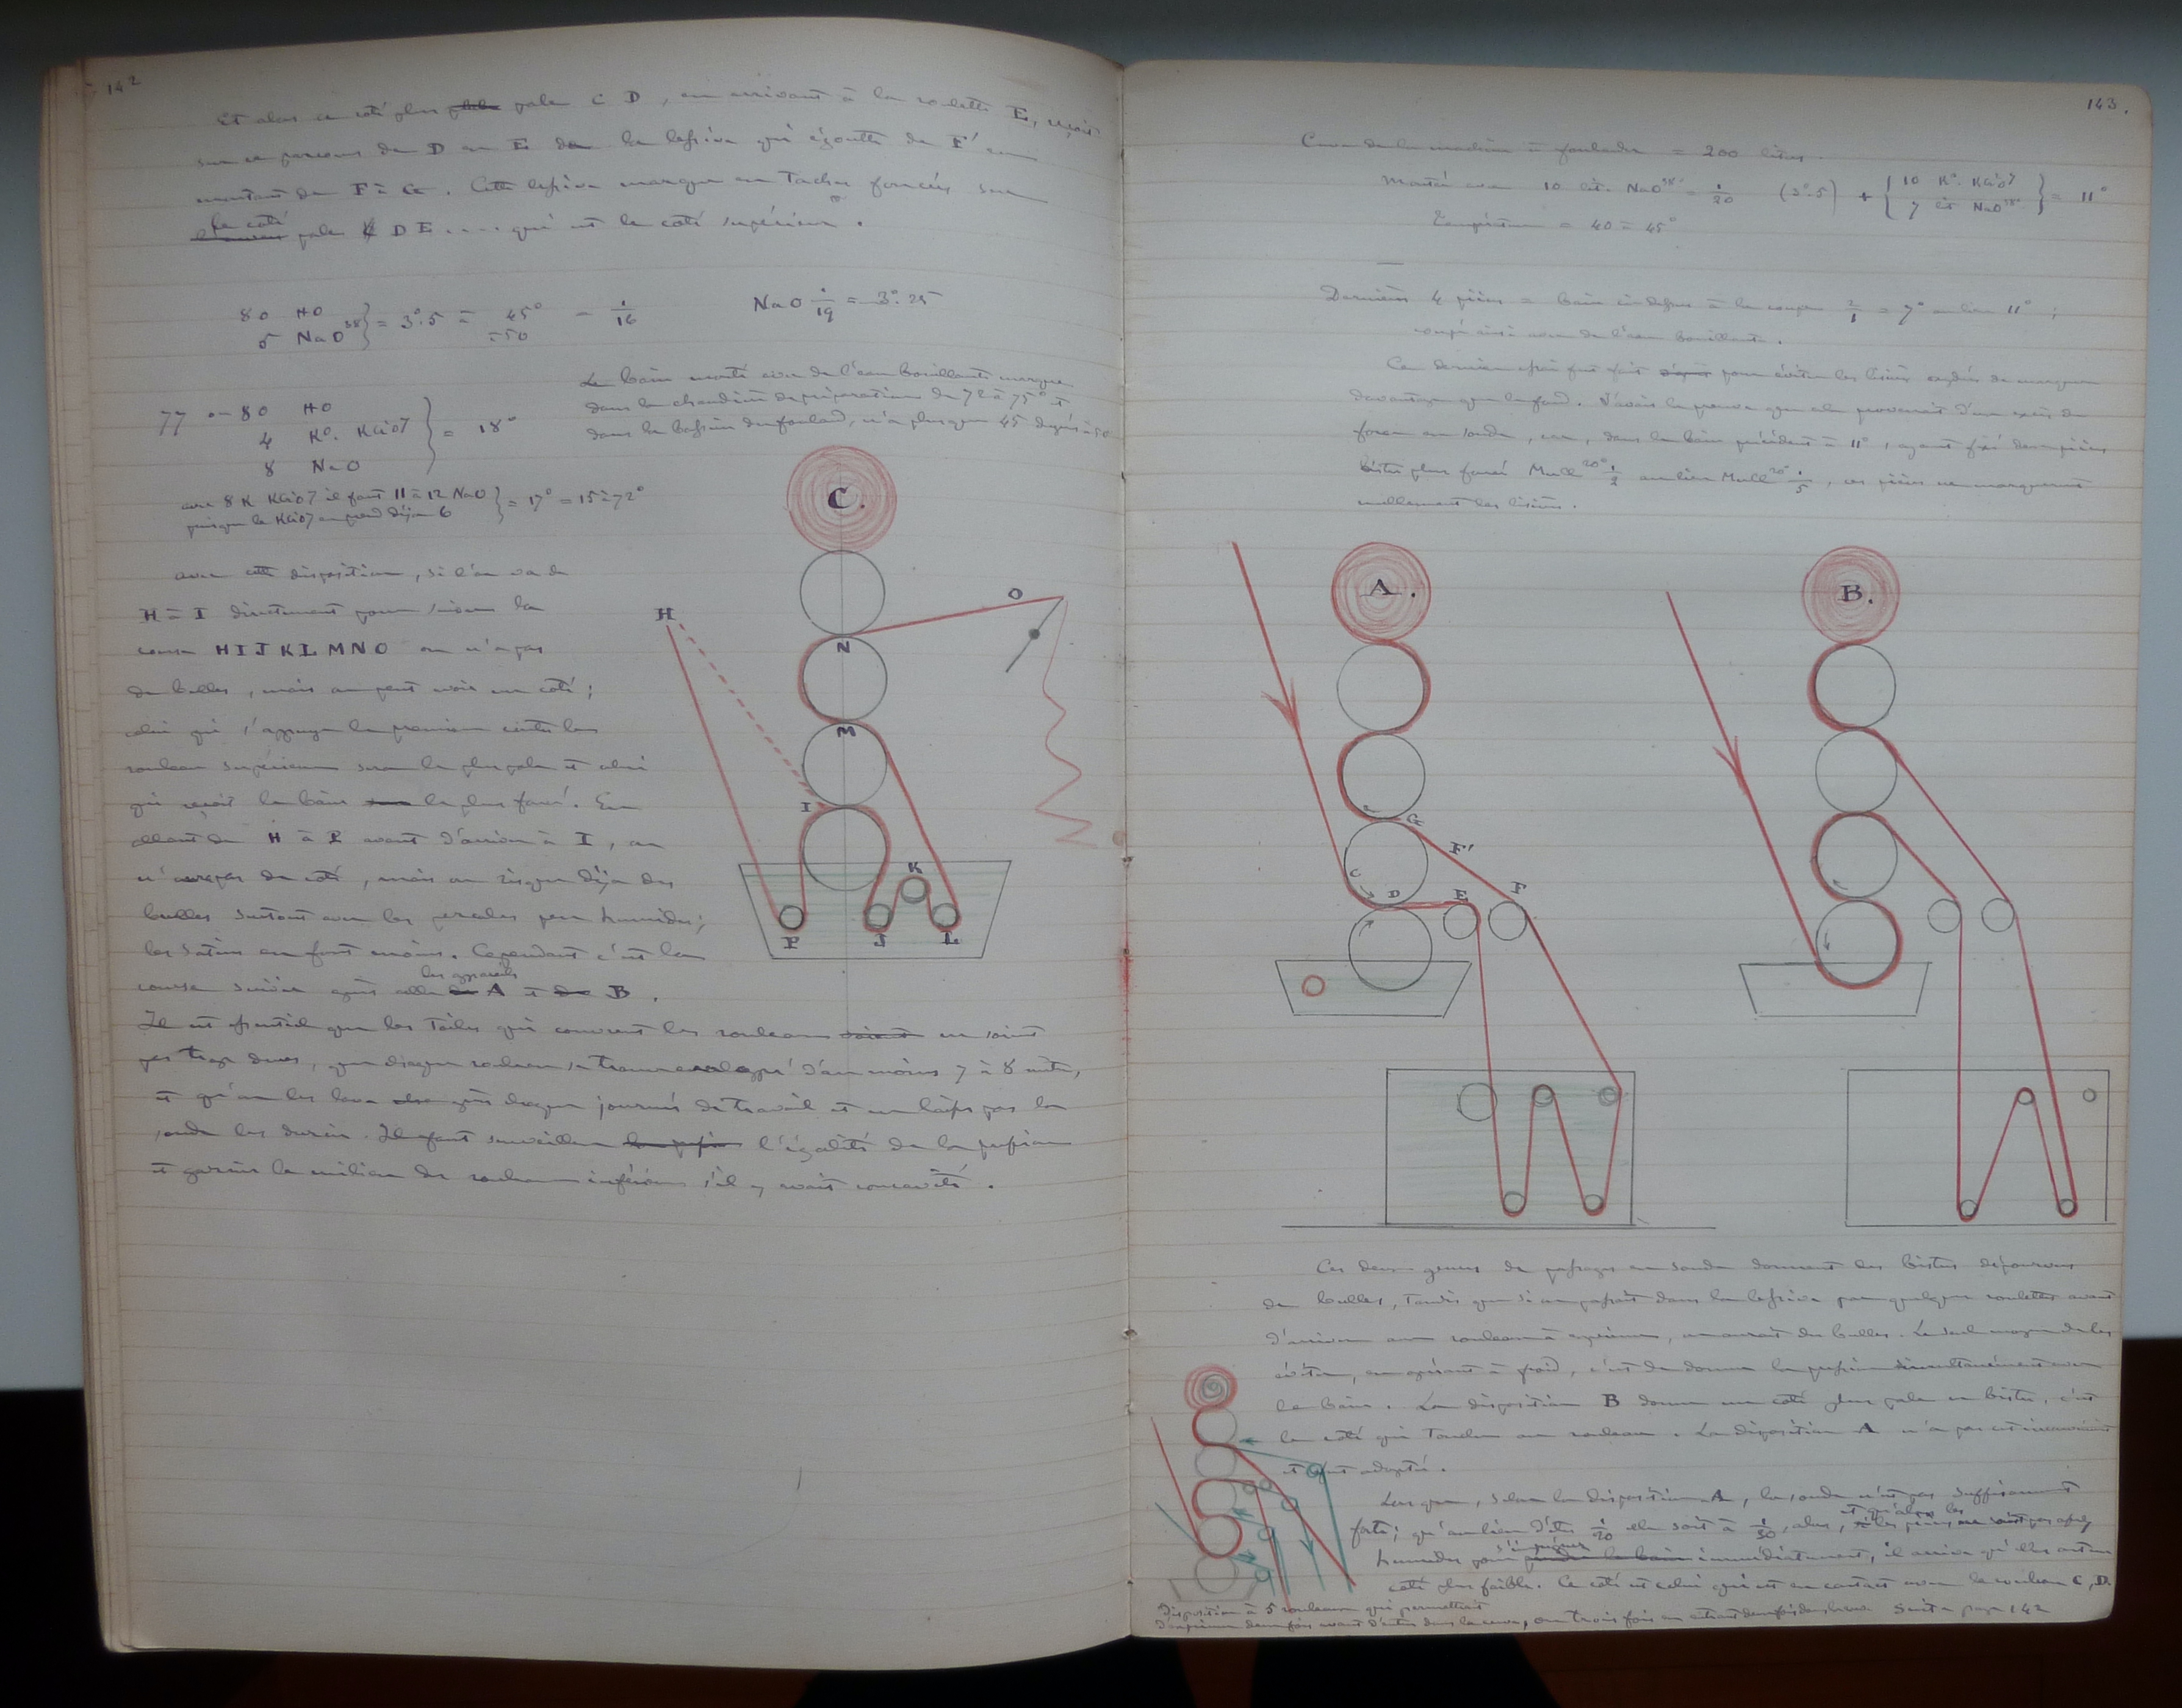 142
Et alors ce côté plus pale C D, en arrivant à la roulette E, reçoit
sur ce parcours de D en E la lessive qui égoutte de F' en
montant de F à G. Cette lessive marque en taches foncées sur
le côté pale D E .... qui est le côté supérieur.
80 HO
5 NaO³⁸ } = 3°.5 à 45° = 1/16
à 50
NaO 1/19 = 3°.25
77 à 80 HO
4 K°. KCrO7
8 NaO } = 18°
Le bain monté avec de l'eau bouillante marque
dans la chaudière de préparation de 72 à 75° et
dans le bassin du foulard, n'a plus que 45 degrés à 50
avec 8 K KCrO7 il faut 11 à 12 NaO
puisque le KCrO7 en prend déjà 6 } = 17° = 15 à 72°
avec cette disposition, si l'on va de
H à I directement pour suivre la
course H I J K L M N O on n'a pas
de bulles, mais on peut avoir un côté;
celui qui s'appuye le premier contre le
rouleau supérieur sera le plus pale et celui
qui reçoit le bain le plus foncé. En
allant de H à P avant d'arriver à I, on
n'a pas de côté, mais on risque déjà des
bulles surtout avec les percales peu humides;
les satins en font moins. Cependant c'est la
course suivie après celle
les appareils
A et B.
Il est essentiel que les toiles qui couvrent les rouleaux ne soient
pas trop dures, que chaque rouleau se trouve enveloppé d'au moins 7 à 8 mètres,
et qu'on les lave après chaque journée de travail et ne laisse pas la
soude les durcir. Il faut surveiller l'égalité de la pression
et garnir le milieu du rouleau inférieur s'il y avait concavité.
C.
H
O
N
M
I
K
P
J
L
143.
Cuve de la machine à foularder = 200 litres.
Monté avec 10 lit. NaO³⁸ = 1/20 (3°.5) + { 10 K°. KCrO7
7 lit NaO³⁸ } = 11°
Température = 40 à 45°
Dernières 4 pièces = bain ci dessus à la coupe 2/1 = 7° au lieu 11°;
coupé ainsi avec de l'eau bouillante.
Ce dernier essai fut fait pour éviter les lisières de marquer
davantage que le fond. J'avais la preuve que cela provenait d'un excès de
force en soude, car, dans le bain précédent à 11°, ayant fixé deux pièces
bistre plus foncé MnCl 20° 1/2 au lieu MnCl 20° 1/5, ces pièces ne marquèrent
nullement les lisières.
A.
B.
G
F'
C
D
E
F
Ces deux genres de passages en soude donnent des bistres dépourvus
de bulles, tandis que si on passait dans la lessive par quelques roulettes avant
d'arriver aux rouleaux à exprimer, on aurait des bulles. Le seul moyen de les
éviter, en opérant à froid, c'est de donner la pression simultanément avec
le bain. La disposition B donne un côté plus pale en bistre, c'est
le côté qui touche au rouleau. La disposition A n'a pas cet inconvénient
et fut adoptée.
Lorsque, selon la disposition A, la soude n'est pas suffisamment
forte; qu'au lieu d'être 1/20 elle soit à 1/30, alors, et qu'alors les pièces ne sont pas assez
humides pour s'imprégner immédiatement, il arrive qu'elles ont un
côté plus faible. Ce côté est celui qui est en contact avec le rouleau C, D.
Suite page 142
Disposition à 5 rouleaux qui permettrait
d'exprimer deux fois avant d'entrer dans la cuve, ou trois fois en entrant deux fois dans la cuve